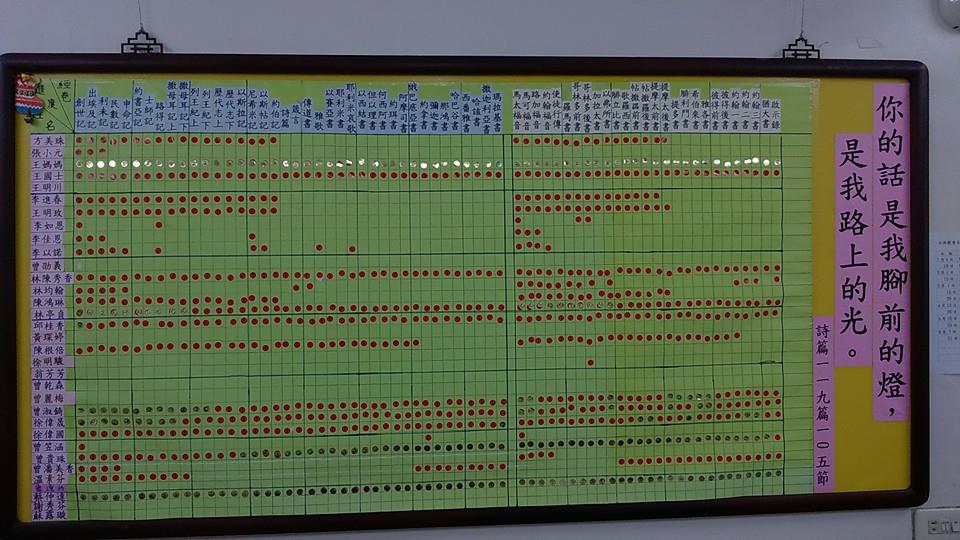 你的話是我腳前的燈，
是我路上的光。
詩篇一一九篇一〇五節
經卷
進度
名
創世記
出埃及記
利未記
民數記
申命記
約書亞記
士師記
路得記
撒母耳記上
撒母耳記下
列王紀上
列王紀下
歷代志上
歷代志下
以斯拉記
尼希米記
以斯帖記
約伯記
詩篇
箴言
傳道書
雅歌
以賽亞書
耶利米書
耶利米哀歌
以西結書
但以理書
何西阿書
約珥書
阿摩司書
俄巴底亞書
約拿書
彌迦書
那鴻書
哈巴谷書
西番雅書
哈該書
撒迦利亞書
瑪拉基書
馬太福音
馬可福音
路加福音
約翰福音
使徒行傳
羅馬書
哥林多前書
哥林多後書
加拉太書
以弗所書
腓立比書
歌羅西書
帖撒羅前書
帖撒羅後書
提摩太前書
提摩太後書
提多書
腓利門書
希伯來書
雅各書
彼得前書
彼得後書
約翰一書
約翰二書
約翰三書
猶大書
啟示錄
方美珠
張小元
王媽媽
王國士
王明川
李進春
王明玫
李如恩
李佳恩
李以諾
曾劭義
林陳秀香
林均翰
陳鴻琳
林亭貞
邱桂香
黃琛婷
陳根倍
徐明驥
翁芳芳
曾乾森
曾麗梅
曾淑錡
徐偉晟
徐偉國
曾笠涵
曾貴珠
曾潘美香
溫素芬
蘇仲達
謝秀芬
蘇露璇